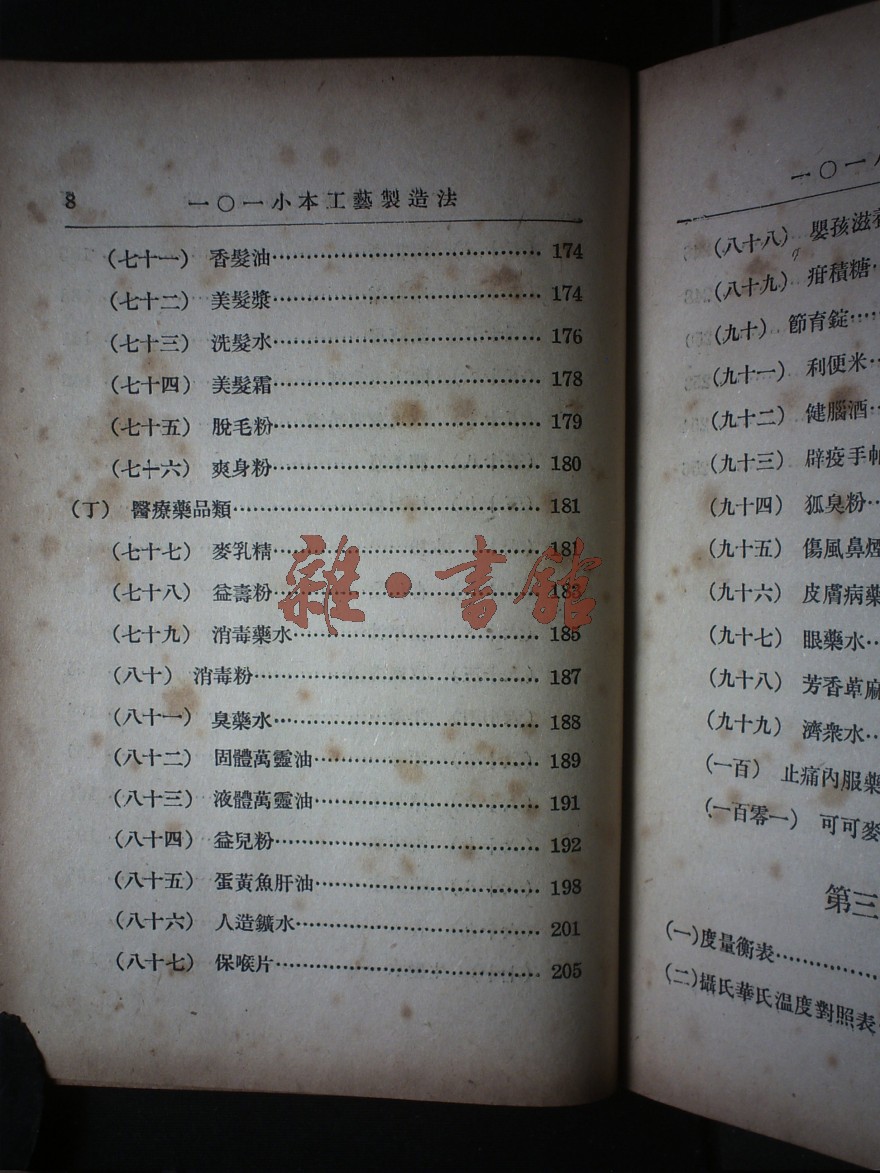 8 一〇一小本工藝製造法
(七十一) 香髮油 174
(七十二) 美髮漿 174
(七十三) 洗髮水 176
(七十四) 美髮霜 178
(七十五) 脫毛粉 179
(七十六) 爽身粉 180
(丁) 醫療藥品類 181
(七十七) 麥乳精 181
(七十八) 益壽粉 183
(七十九) 消毒藥水 185
(八十) 消毒粉 187
(八十一) 臭藥水 188
(八十二) 固體萬靈油 189
(八十三) 液體萬靈油 191
(八十四) 益兒粉 192
(八十五) 蛋黃魚肝油 198
(八十六) 人造鑛水 201
(八十七) 保喉片 205
雜·書館
一〇一小
(八十八) 嬰孩滋養
(八十九) 疳積糖
(九十) 節育錠
(九十一) 利便米
(九十二) 健腦酒
(九十三) 辟疫手帕
(九十四) 狐臭粉
(九十五) 傷風鼻煙
(九十六) 皮膚病藥
(九十七) 眼藥水
(九十八) 芳香萆麻
(九十九) 濟衆水
(一百) 止痛內服藥
(一百零一) 可可麥
第三
(一)度量衡表
(二)攝氏華氏温度對照表